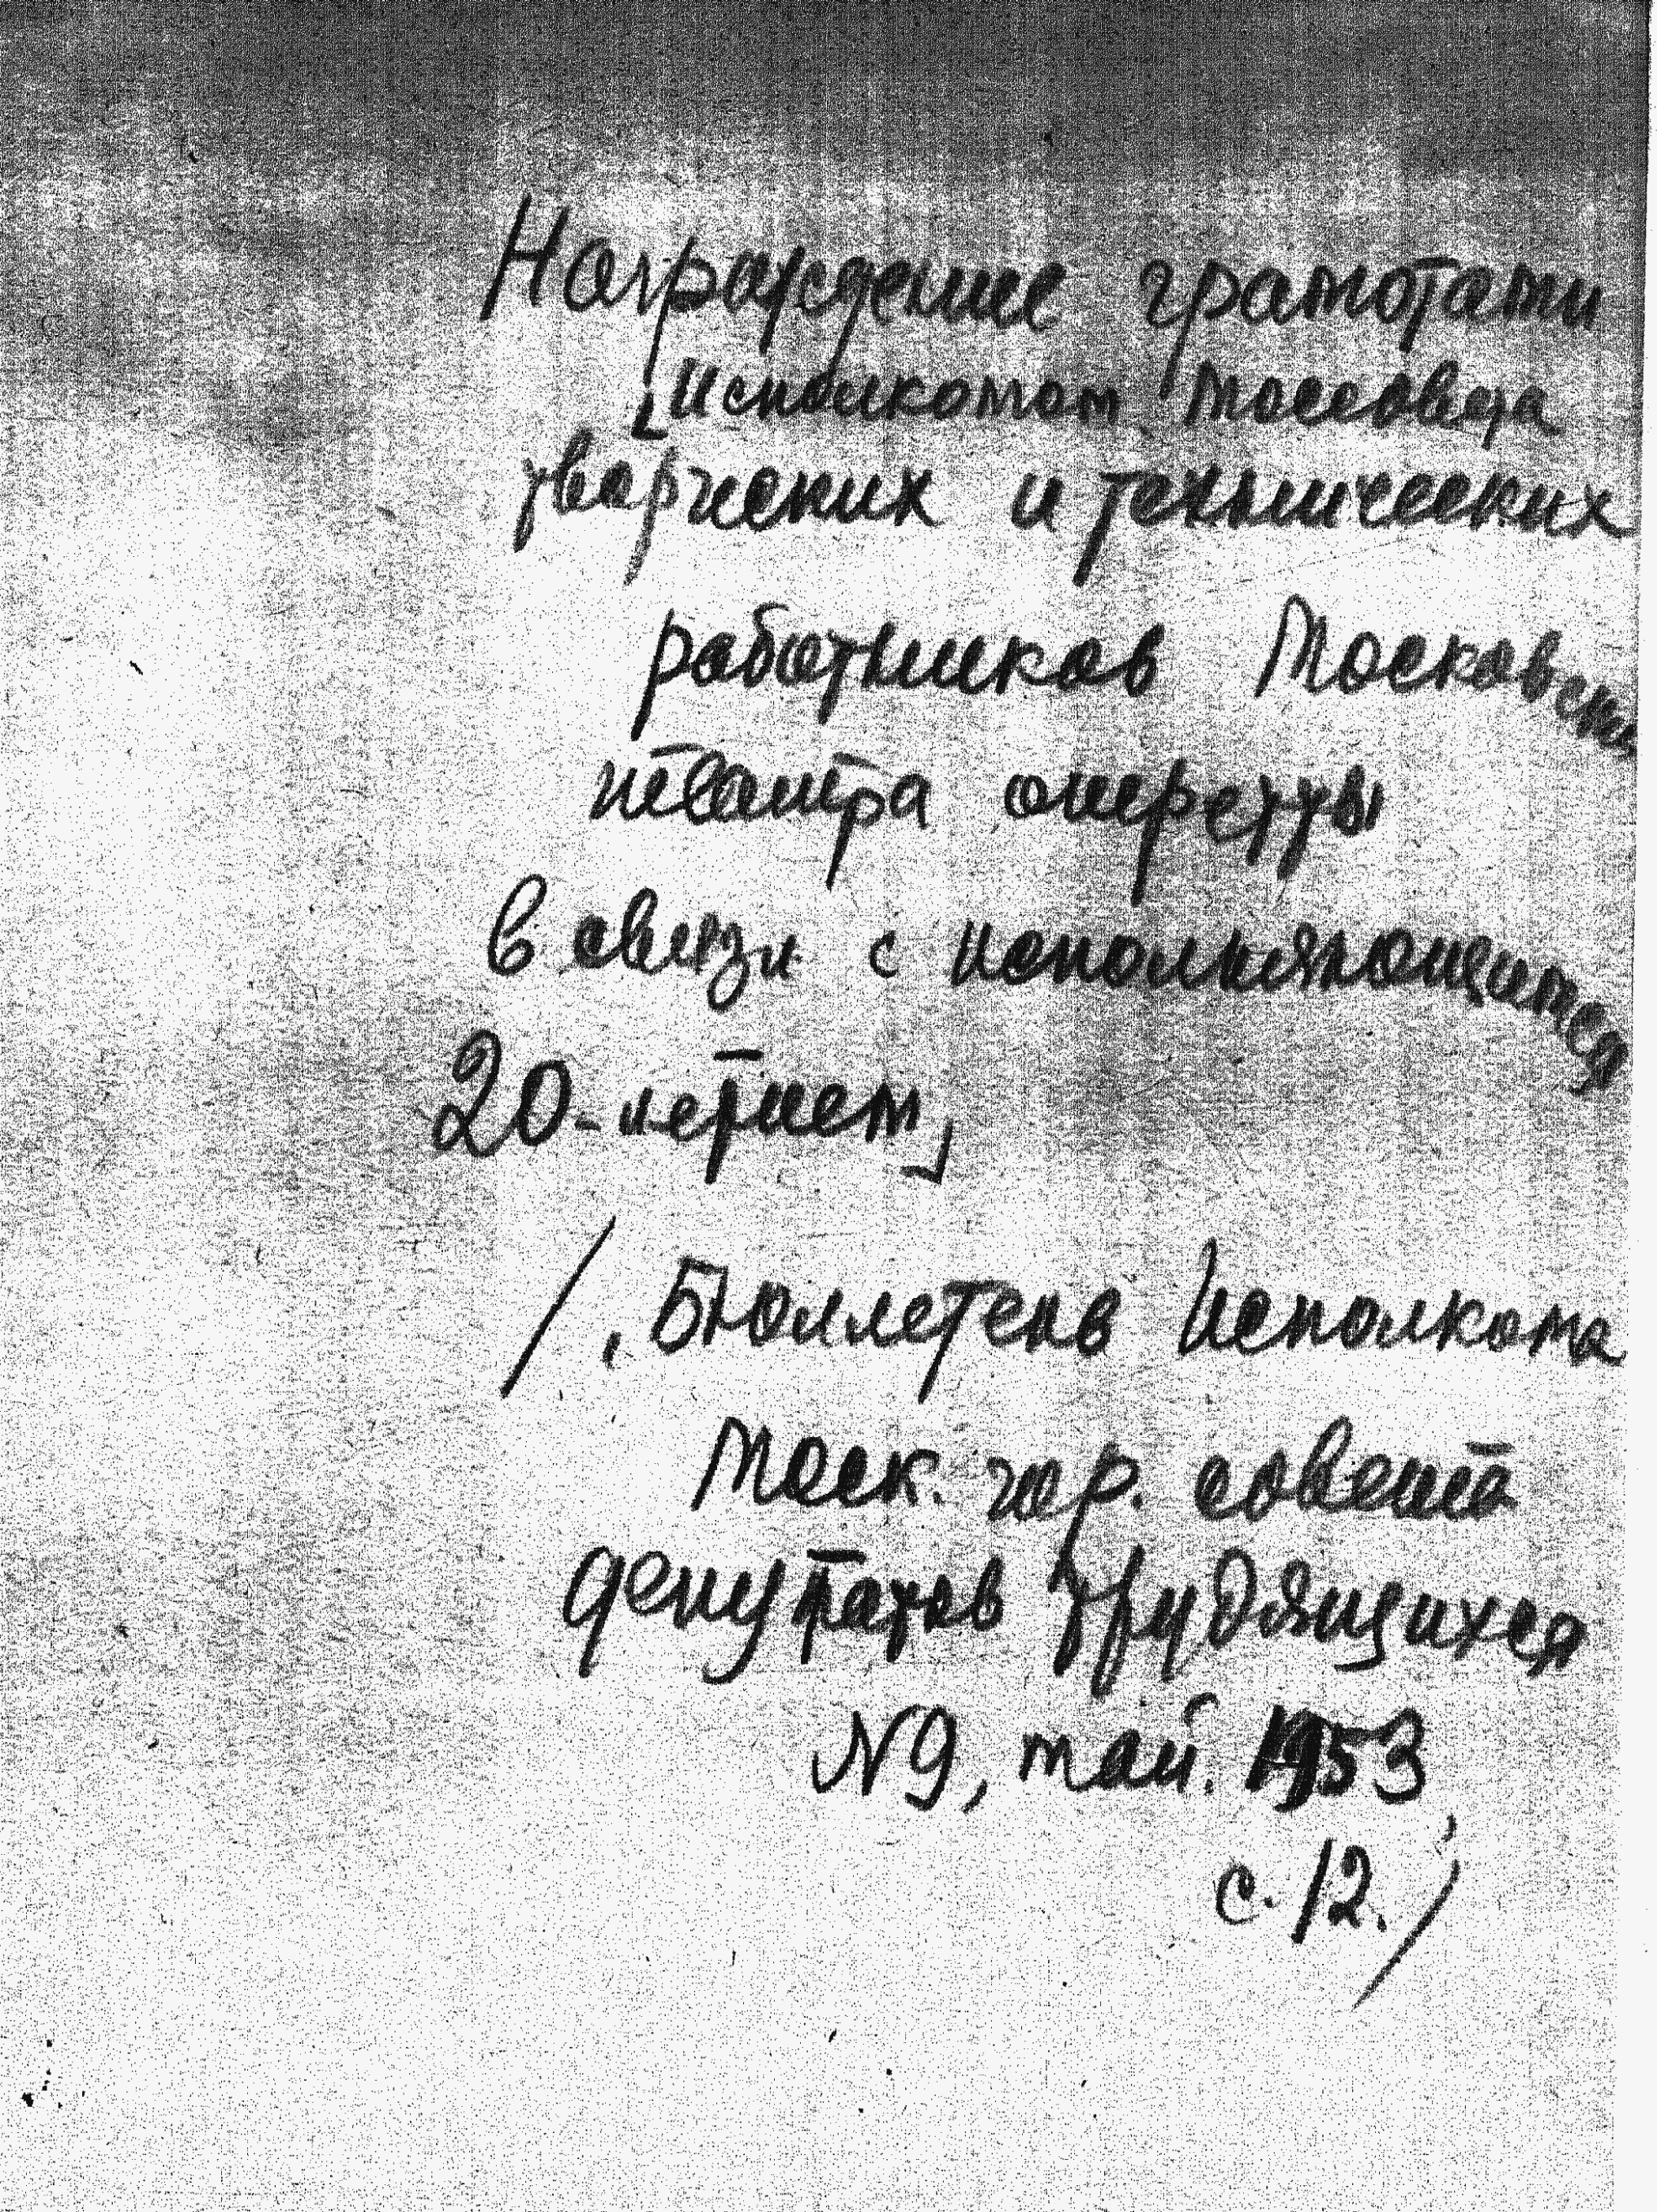 Награждение грамотами
Исполкомом Моссовета
творческих и технических
работников Московск
театра оперетты
в связи с исполняющимся
20-летием
/, Бюллетень Исполкома
Моск. гор. совета
депутатов трудящихся
№9, май. 1953,
с. 12. /